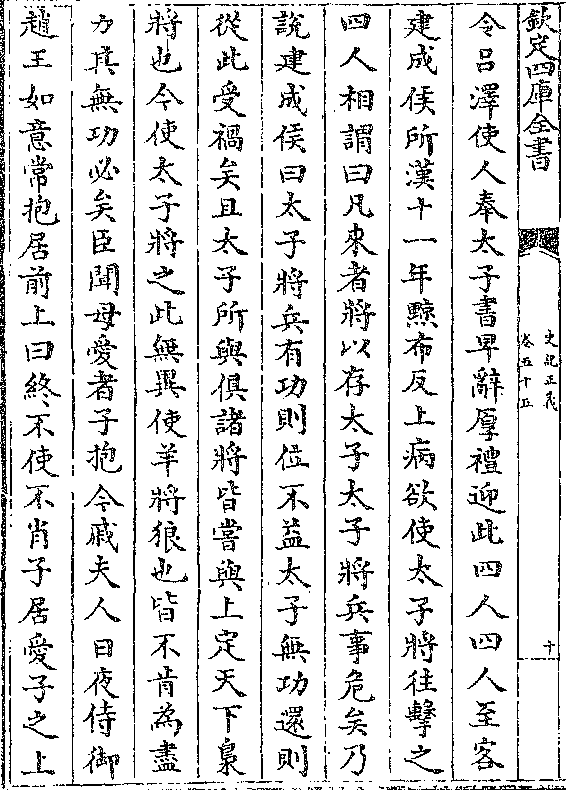 欽定四庫全書
史記正義
卷五十五
十
令呂澤使人奉太子書卑辭厚禮迎此四人四人至客
建成侯所漢十一年黥布反上病欲使太子將往擊之
四人相謂曰凡來者將以存太子太子將兵事危矣乃
說建成侯曰太子將兵有功則位不益太子無功還則
從此受禍矣且太子所與俱諸將皆嘗與上定天下梟
將也今使太子將之此無異使羊將狼也皆不肯為盡
力其無功必矣臣聞母愛者子抱今戚夫人日夜侍御
趙王如意常抱居前上曰終不使不肖子居愛子之上